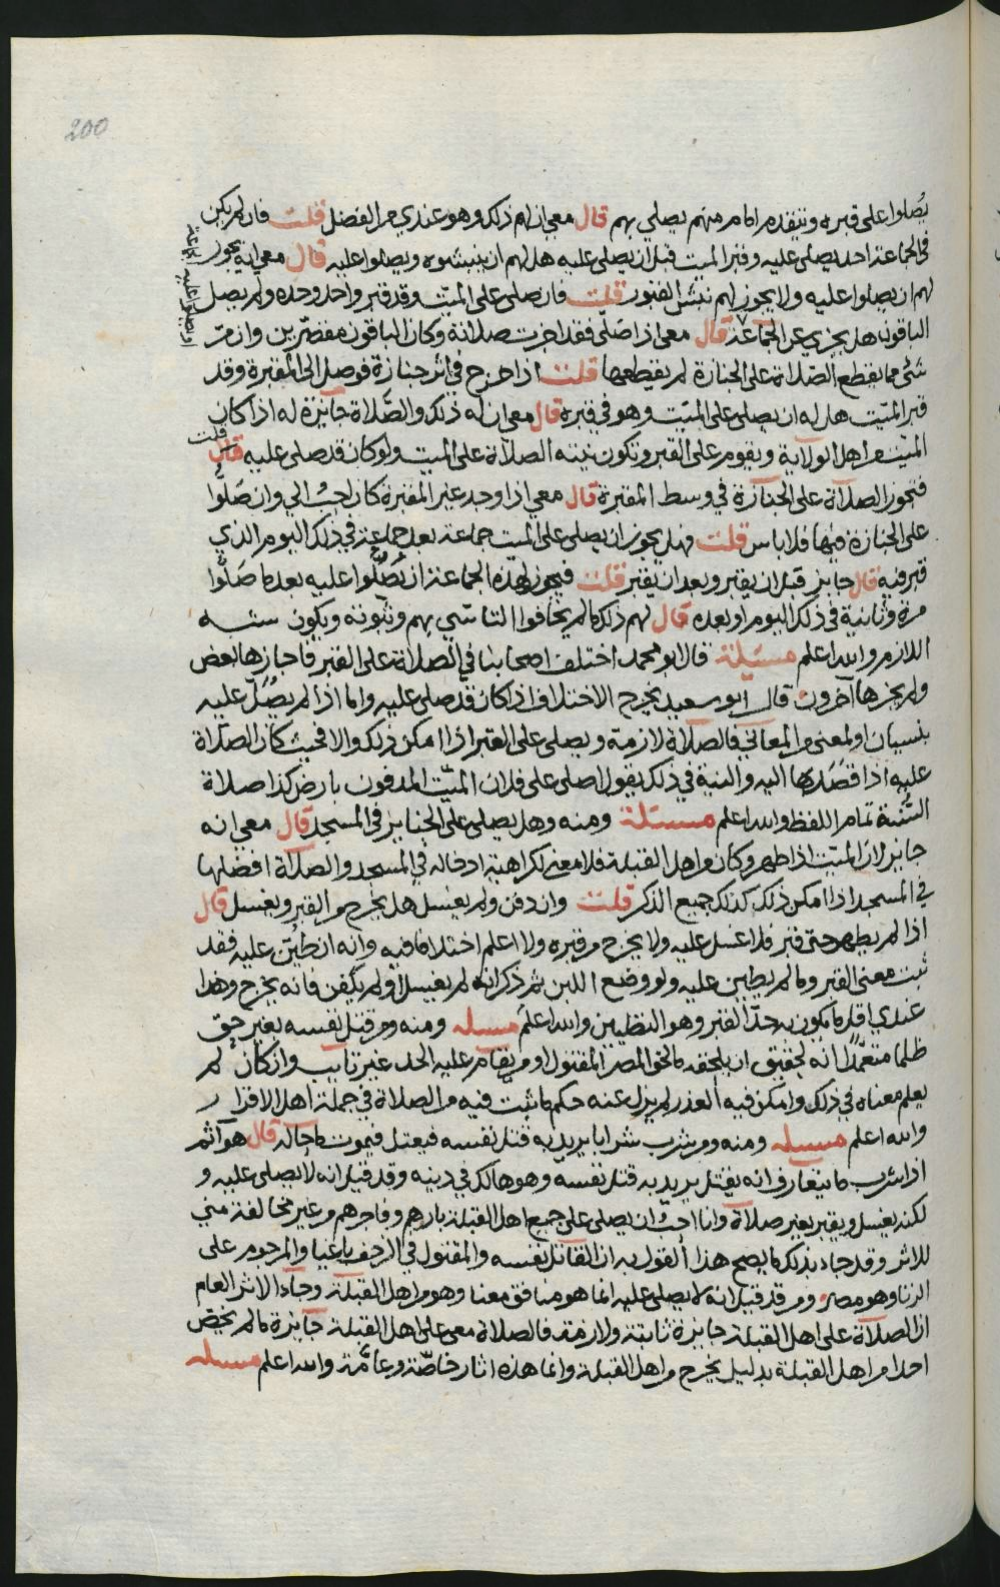 200
يُصلوا على قبره ويتقدم امام منهم يصلي بهم قال معي ان لهم ذلك وهو عندي من الفضل قلت فان لم يكن
في الجماعة احد يصلي عليه وقبر الميت قبل ان يصلى عليه هل لهم ان ينبشوه ويصلوا عليه قال معي انه يجوز
لهم ان يصلوا عليه ولا يجوز لهم نبش القبور قلت فان صلى على الميت وقد قبر واحد وحده ولم يصل
الباقون هل يجزي عن الجماعة قال معي اذا صلى فقد اجزت صلاته وكان الباقون مقصّرين وان مرّ
شئ مما يقطع الصّلاة على الجنازة لم يقطعها قلت اذا خرج في اثر جنازة فوصل الى المقبرة وقد
قبر الميّت هل له ان يصلي على الميّت وهو في قبره قال معي ان له ذلك والصّلاة جايزة له اذا كان
الميت من اهل الولاية ويقوم على القبر وتكون نيته الصلاة على الميت ولو كان قد صلى عليه قال قلت
فتجوز الصلاة على الجنازة في وسط المقبرة قال معي اذا وجد غير المقبرة كان احب الي وان صَلّوا
على الجنازة فيها فلا باس قلت فهل يجوز ان يصلى على الميت جماعة بعد جماعة في ذلك اليوم الذي
قبر فيه قال جايز قبل ان يقبر وبعد ان يقبر قلت فيجوز لهذه الجماعة ان يُصَلّوا عليه بعد ما صَلّوا
مرة وثانية في ذلك اليوم او بعده قال لهم ذلك ما لم يخافوا التاسّي بهم ويكون سنه
اللازم والله اعلم مسئلة قال ابو محمد اختلف اصحابنا في الصلاة على القبر فاجازها بعض
ولم يجزها آخرون قال ابو سعيد يخرج الاختلاف اذا كان قد صلى عليه واما اذا لم يُصَلّ عليه
بنسيان او لمعنى من المعاني فالصلاة لازمة ويصلى على القبر اذا امكن ذلك والا فحيث كان الصّلاة
عليه اذا قصَدَ بها اليه والنية في ذلك يقول اصلي على فلان الميّت المدفون بارض كذا صلاة
السُّنة تمام اللفظ والله اعلم مسئلة ومنه وهل يصلى على الجنايز في المسجد قال معي انه
جايز لان الميّت اذا طهر وكان من اهل القبلة فلا معنى لكراهية ادخاله في المسجد والصلاة افضلها
في المسجد اذا امكن ذلك كذلك جميع الذكر قلت وان دفن ولم يغسل هل يخرج من القبر ويغسل قال
اذا لم يطهر حتى قبر فلا غسل عليه ولا يخرج من قبره ولا اعلم اختلافا فيه وانه ان طُيّن عليه فقد
ثبت معنى القبر وما لم يطين عليه ولو وضع اللبن ثم ذكر انه لم يغسل او لم يكفن فانه يخرج وهذا
عندي اقل ما يكون به حدّ القبر وهو التطيين والله اعلم مسئله ومنه ومن قتل نفسه بغير حق
ظلما متعمّدًا انه لحقيق ان يلحقه ما لحق المصر المقتول او من يقام عليه الحد غير تايب وان كان لم
يعلم معناه في ذلك وامكن فيه العذر لم يزل عنه حكم ما ثبت فيه من الصلاة في جملة اهل الاقرار
والله اعلم مسئله ومنه ومن شرب شرابا يريد به قتل نفسه فيعتل فيموت ما حاله قال هو آثم
اذا شرب ما يتعارف انه يقتل يريد به قتل نفسه وهو هالك في دينه وقد قيل انه لا يصلى عليه و
لكنه يغسل ويقبر بغير صلاة وانا احبّ ان يصلى على جميع اهل القبلة بارهم وفاجرهم من غير مخالفة مني
للاثر وقد جاء بذلك ما يصح هذا القول به ان القاتل نفسه والمقتول في الزحف باغيا والمرجوم على
الزنا وهو مصر ومن قد قيل انه لا يصلى عليه انما هو منافق معنا وهو من اهل القبلة وجاء الاثر العام
ان الصلاة على اهل القبلة جايزة ثابتة ولازمة فالصلاة معي على اهل القبلة جايزة ما لم يخص
احدا من اهل القبلة بدليل يخرج من اهل القبلة وانما هذه اثار خاصّة وعامّة والله اعلم مسئله